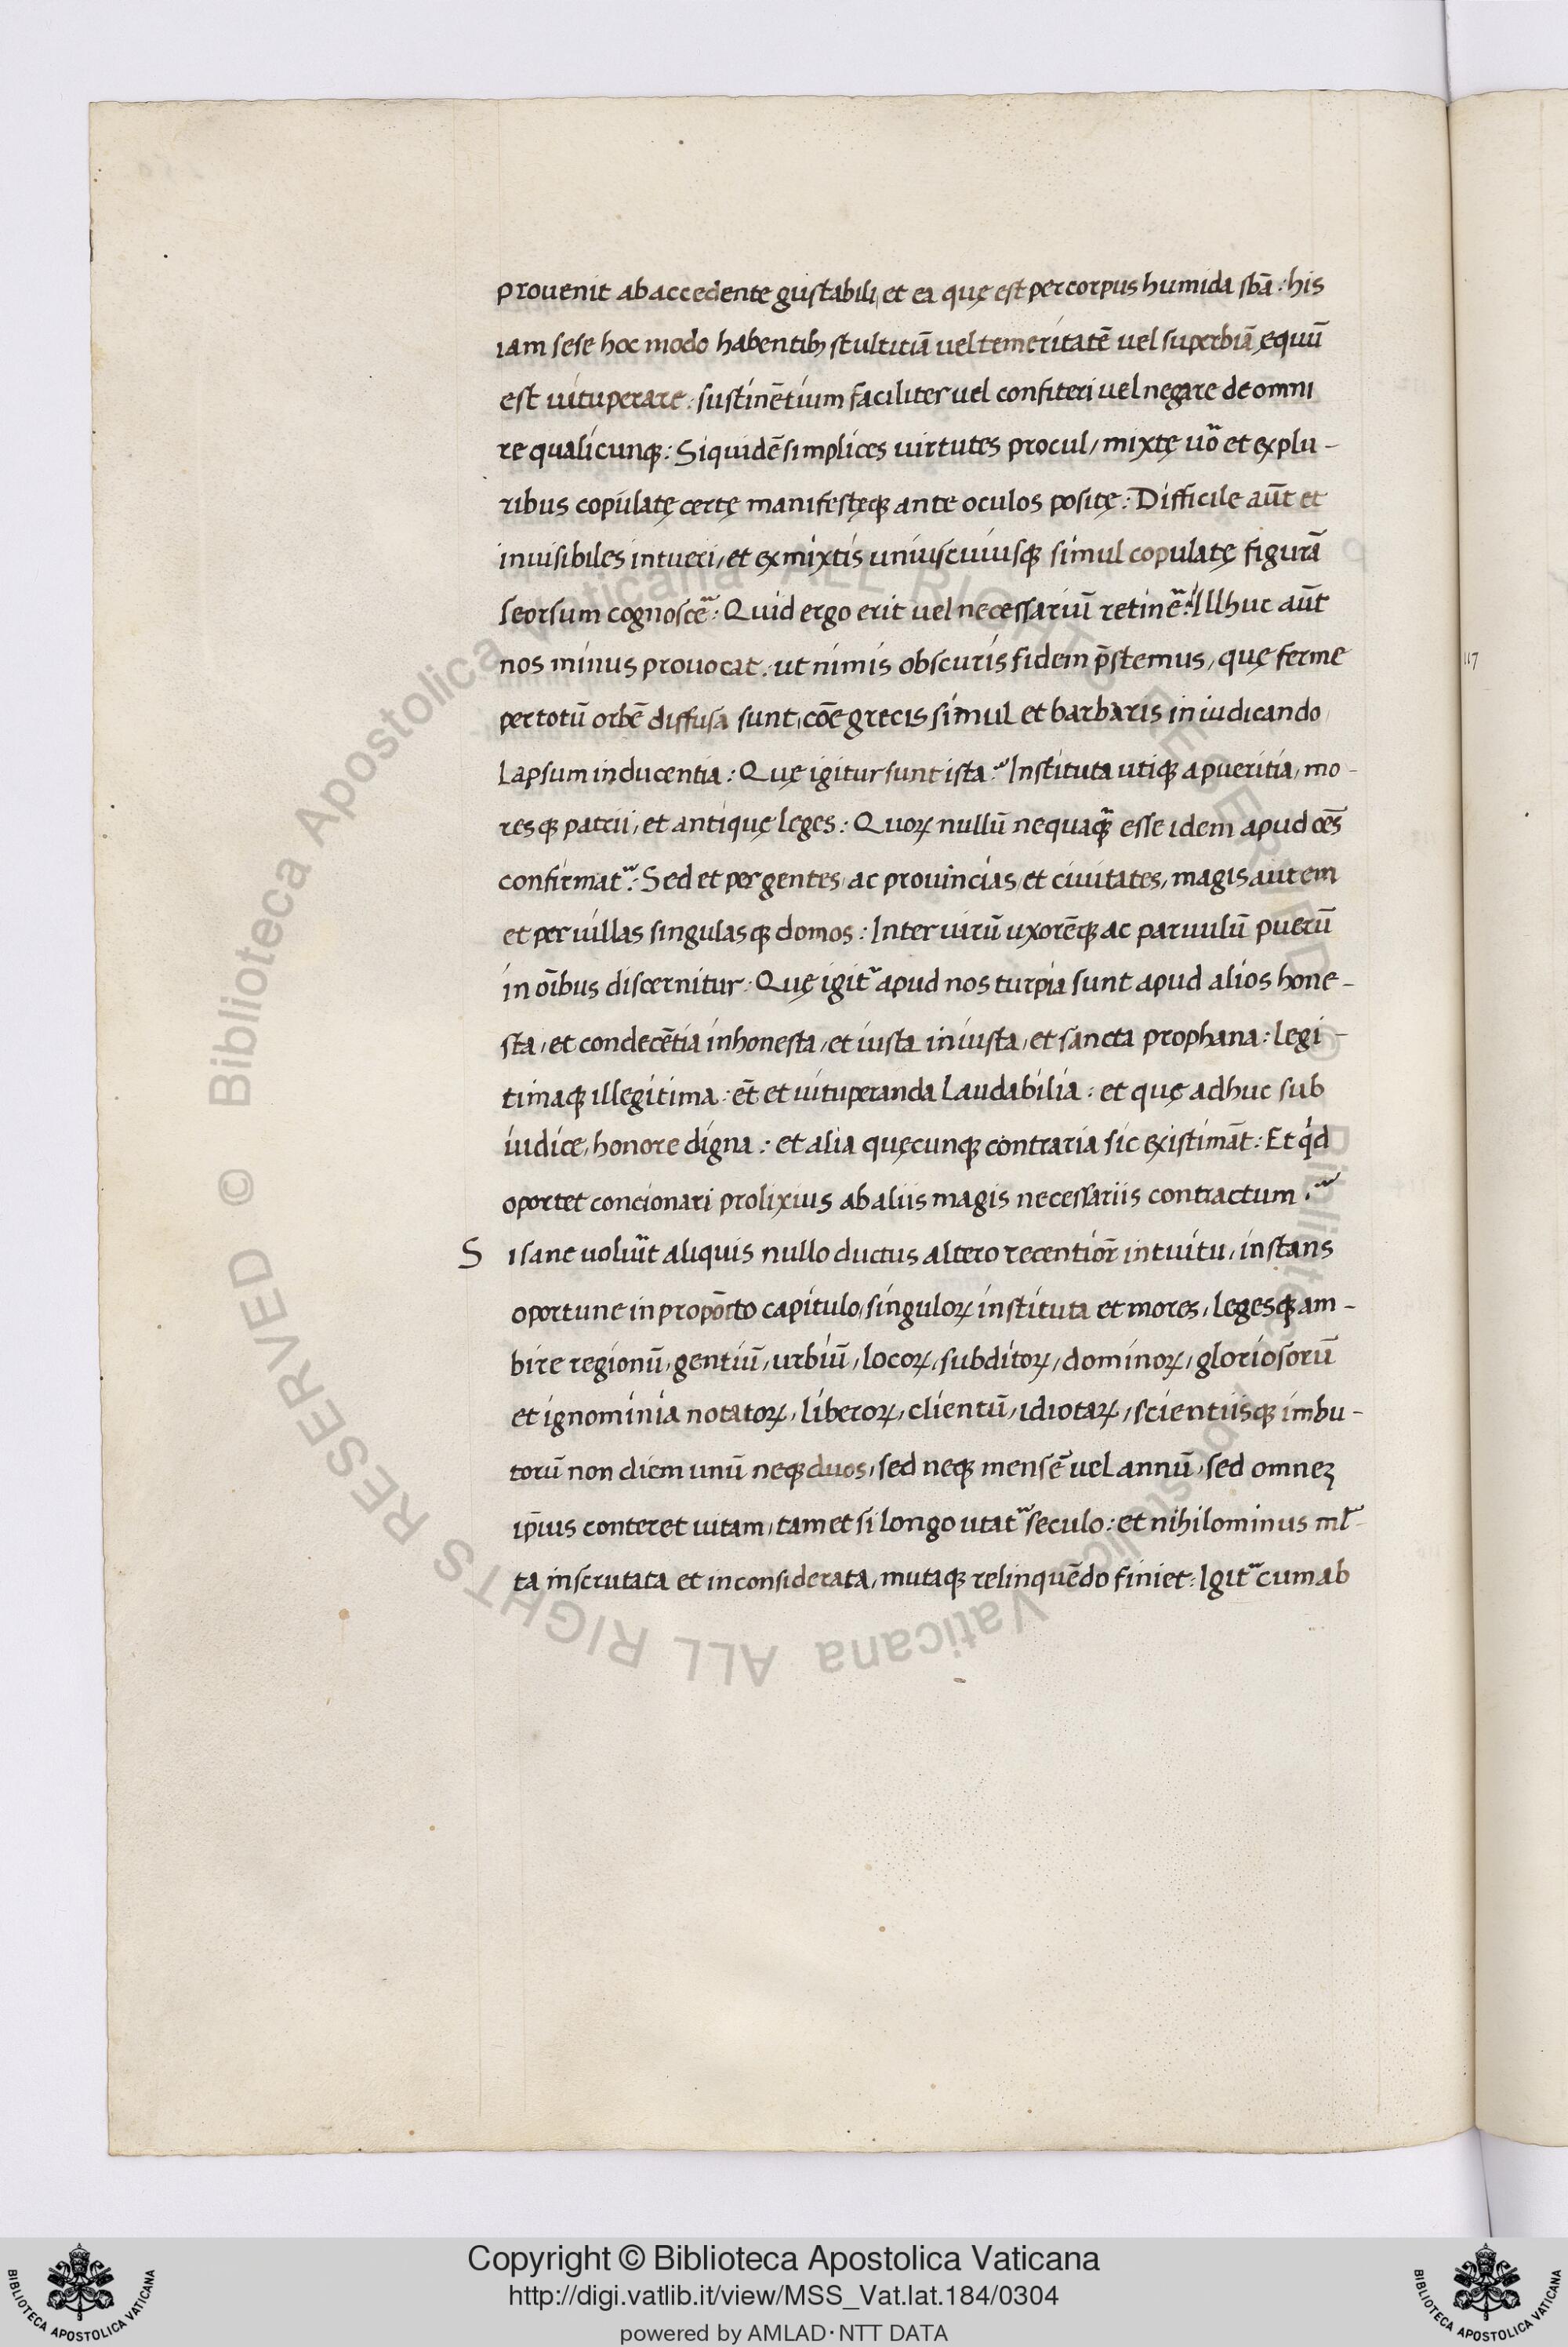 prouenit ab accedente gustabili, et ea quę est per corpus humida sbā: his
iam sese hoc modo habentib; stultitiā uel temeritatē uel superbiā, ęquū
est uituperare: sustinētium faciliter uel confiteri uel negare de omni
re qualicunq;: Siquidē simplices uirtutes procul, mixtę uoᷓ et ex plu-
ribus copulatę certę manifestęq; ante oculos positę: Difficile aūt et
inuisibiles intueri, et ex mixtis uniuscuiusq; simul copulatę figurā
seorsum cognosceᷓ: Quid ergo erit uel necessariū retineᷓ: Illhuc aūt
nos minus prouocat: ut nimis obscuris fidem p̄stemus, quę ferme
per totū orbē diffusa sunt, cōe grecis simul et barbaris in iudicando
lapsum inducentia: Quę igitur sunt ista? Instituta utiq; a pueritia, mo-
resq; patrii, et antiquę leges: Quoꝝ nullū nequaqᷓ esse idem apud oēs
confirmat᷑: Sed et per gentes, ac prouincias, et ciuitates, magis autem
et per uillas singulasq; domos: Inter uirū uxorēq; ac paruulū puerū
in oībus discernitur: Quę igit᷑ apud nos turpia sunt apud alios hone-
sta, et condecētia inhonesta, et iusta iniusta, et sancta prophana: legi-
timaq; illegitima: et̄ et uituperanda laudabilia: et quę adhuc sub
iudice, honore digna: et alia quęcunq; contraria sic existimāt: Et qⁱd
oportet concionari prolixius ab aliis magis necessariis contractum?
S i sane uolu᷑it aliquis nullo ductus altero recentior̄ intuitu, instans
oportune in propōito capitulo, singuloꝝ instituta et mores, legesq; am-
bire regionū, gentiū, urbiū, locoꝝ, subditoꝝ, dominoꝝ, gloriosorū
et ignominia notatoꝝ, liberoꝝ, clientū, idiotaꝝ, scientiisq; imbu-
torū non diem unū neq; duos, sed neq; mensē uel annū, sed omneꝫ
ip̄ius conteret uitam, tametsi longo utat᷑ seculo: et nihilominus ml̄-
ta inscrutata et inconsiderata, mutaq; relinquēdo finiet: Igit᷑ cum ab
117
© Biblioteca Apostolica Vaticana ALL RIGHTS RESERVED © Biblioteca Apostolica Vaticana ALL RIGHTS RESERVED
Copyright © Biblioteca Apostolica Vaticana
http://digi.vatlib.it/view/MSS_Vat.lat.184/0304
powered by AMLAD·NTT DATA
BIBLIOTECA APOSTOLICA VATICANA
BIBLIOTECA APOSTOLICA VATICANA